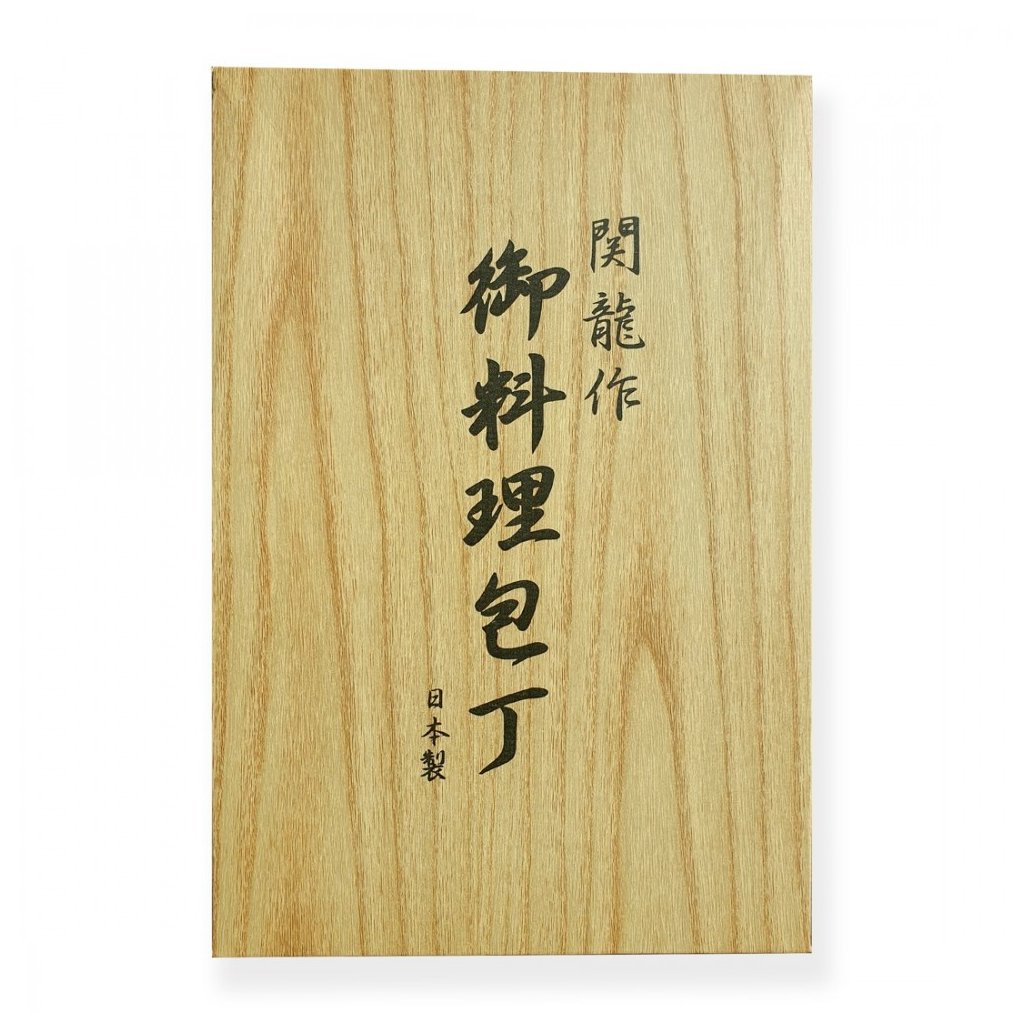 関龍作
御料理包丁
日本製